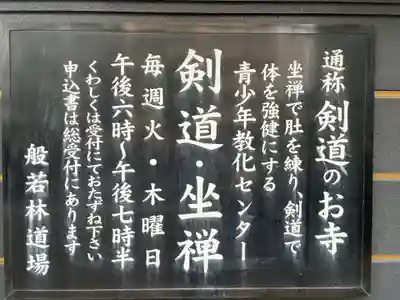 通称 剣道のお寺
坐禅で肚を練り、剣道で
体を強健にする
青少年教化センター
剣道・坐禅
毎週火・木曜日
午後六時〜午後七時半
くわしくは受付にておたずね下さい
申込書は総受付にあります
般若林道場